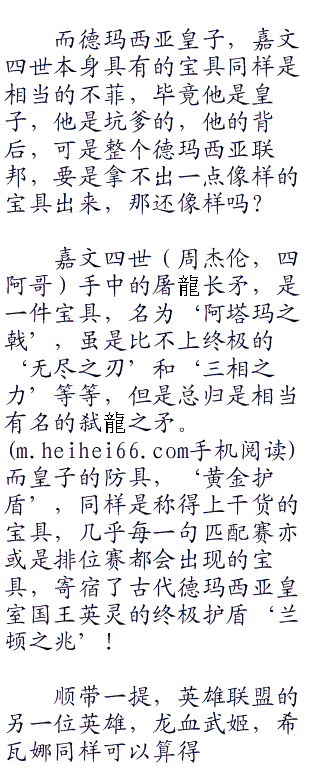 而德玛西亚皇子，嘉文
四世本身具有的宝具同样是
相当的不菲，毕竟他是皇
子，他是坑爹的，他的背
后，可是整个德玛西亚联
邦，要是拿不出一点像样的
宝具出来，那还像样吗？
嘉文四世（周杰伦，四
阿哥）手中的屠龍长矛，是
一件宝具，名为‘阿塔玛之
戟’，虽是比不上终极的
‘无尽之刃’和‘三相之
力’等等，但是总归是相当
有名的弑龍之矛。
(m.heihei66.com手机阅读)
而皇子的防具，‘黄金护
盾’，同样是称得上干货的
宝具，几乎每一句匹配赛亦
或是排位赛都会出现的宝
具，寄宿了古代德玛西亚皇
室国王英灵的终极护盾‘兰
顿之兆’！
顺带一提，英雄联盟的
另一位英雄，龙血武姬，希
瓦娜同样可以算得